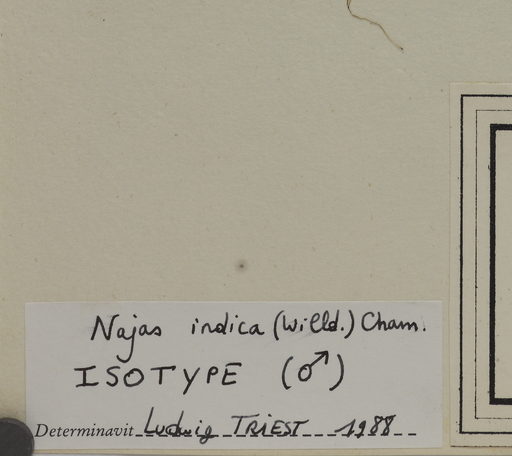 Najas indica (Willd.) Cham.
ISOTYPE (♂)
Determinavit Ludwig TRIEST 1988